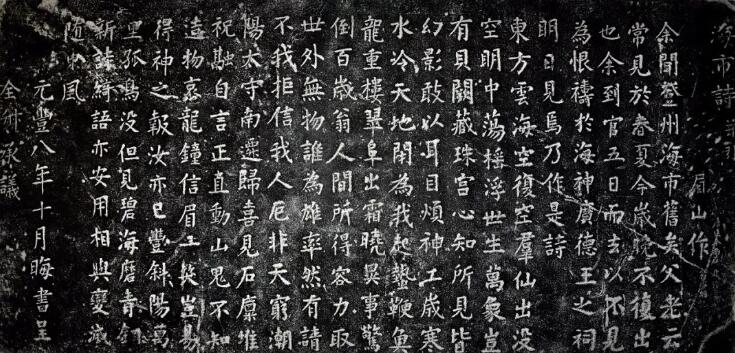 海市詩
眉山作
余聞登州海市舊矣父老云
常見於春夏今歲晚不復出
也余到官五日而去以不見
為恨禱於海神廣德王之祠
明日見焉乃作是詩
東方雲海空復空羣仙出没
空明中蕩搖浮世生萬象豈
有貝闕藏珠宮心知所見皆
幻影敢以耳目煩神工歲寒
水冷天地閉為我起蟄鞭魚
龍重樓翠阜出霜曉異事驚
倒百歲翁人間所得容力取
世外無物誰為雄率然有請
不我拒信我人厄非天窮潮
陽太守南遷歸喜見石廩堆
祝融自言正直動山鬼不知
造物哀龍鐘信眉一笑豈易
得神之報汝亦已豐斜陽萬
里孤鳥没但見碧海磨青銅
新詩綺語亦安用相與變滅
随東風
元豐八年十月晦書呈
全叔承議